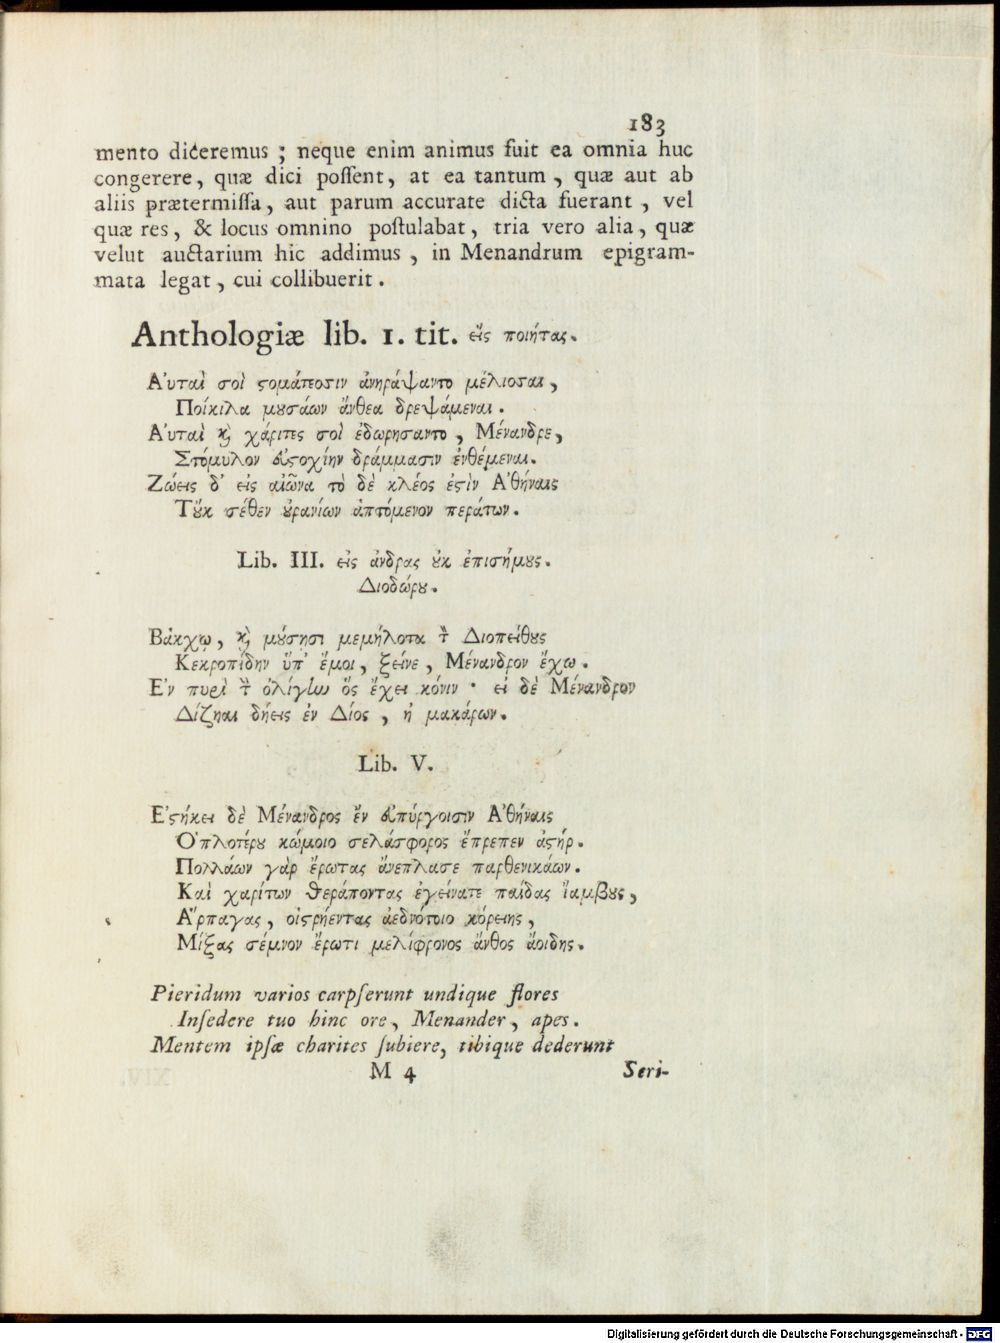 183
mento diceremus ; neque enim animus fuit ea omnia huc
congerere, quæ dici poſſent, at ea tantum, quæ aut ab
aliis prætermiſſa, aut parum accurate dicta fuerant, vel
quæ res, & locus omnino poſtulabat, tria vero alia, quæ
velut auctarium hic addimus, in Menandrum epigram-
mata legat, cui collibuerit.
Anthologiæ lib. 1. tit. εἴς ποιήτας.
Αὐταὶ σοὶ ϛομάτεοσιν ἀνηράψαντο μέλιοσαι,
Ποίκιλα μȣσάων ἄνθεα δρεψάμεναι.
Αὐταὶ ϗ χάριτες σοὶ ἐδωρησαντο, Μένανδρε,
Στόμυλον εὐϛοχίην δράμμασιν ἐνθέμεναι.
Ζώεις δ' εἰς αἰῶνα τὸ δὲ κλέος ἐϛὶν Ἀθήναις
Τȣ͂κ σέθεν ȣ̓ρανίων ἁπτόμενον περάτων.
Lib. III. εἰς ἀνδρας ȣ̓κ ἐπισήμȣς.
Διοδώρȣ.
Βάκχῳ, ϗ μȣ́σησι μεμήλοτα τ̀ Διοπείθȣς
Κεκροπίδην ὕπ' ἔμοι, ξείνε, Μένανδρον ἔχω.
Εν πυρὶ τ̀ ὀλίγων ὅς ἔχει κόνιν · εἰ δὲ Μένανδρον
Δίζηαι δήεις ἐν Δίος, ἠ μακάρων.
Lib. V.
Εἰϛήκει δὲ Μένανδρος ἔν εὐπύργοισιν Ἀθήναις
Ὁπλοτέρȣ κώμοιο σελάσφορος ἔπρεπεν ἀϛήρ.
Πολλάων γὰρ ἔρωτας ἄνεπλασε παρθενικάων.
Καὶ χαρίτων θεράποντας ἐγείνατε παίδας ἴαμβȣς,
Ἅρπαγας, οἰϛρήεντας ἀεδνότοιο κόρειης,
Μίξας σέμνον ἔρωτι μελίφρονος ἄνθος ἄοιδης.
Pieridum varios carpſerunt undique flores
Inſedere tuo hinc ore, Menander, apes.
Mentem ipſæ charites ſubiere, tibique dederunt
M 4 Seri-
Digitalisierung gefördert durch die Deutsche Forschungsgemeinschaft - DFG